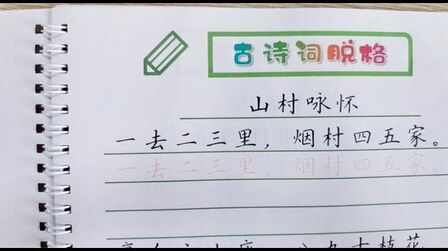 古诗词脱格
山村咏怀
一去二三里，烟村四五家。
一去二三里，烟村四五家。